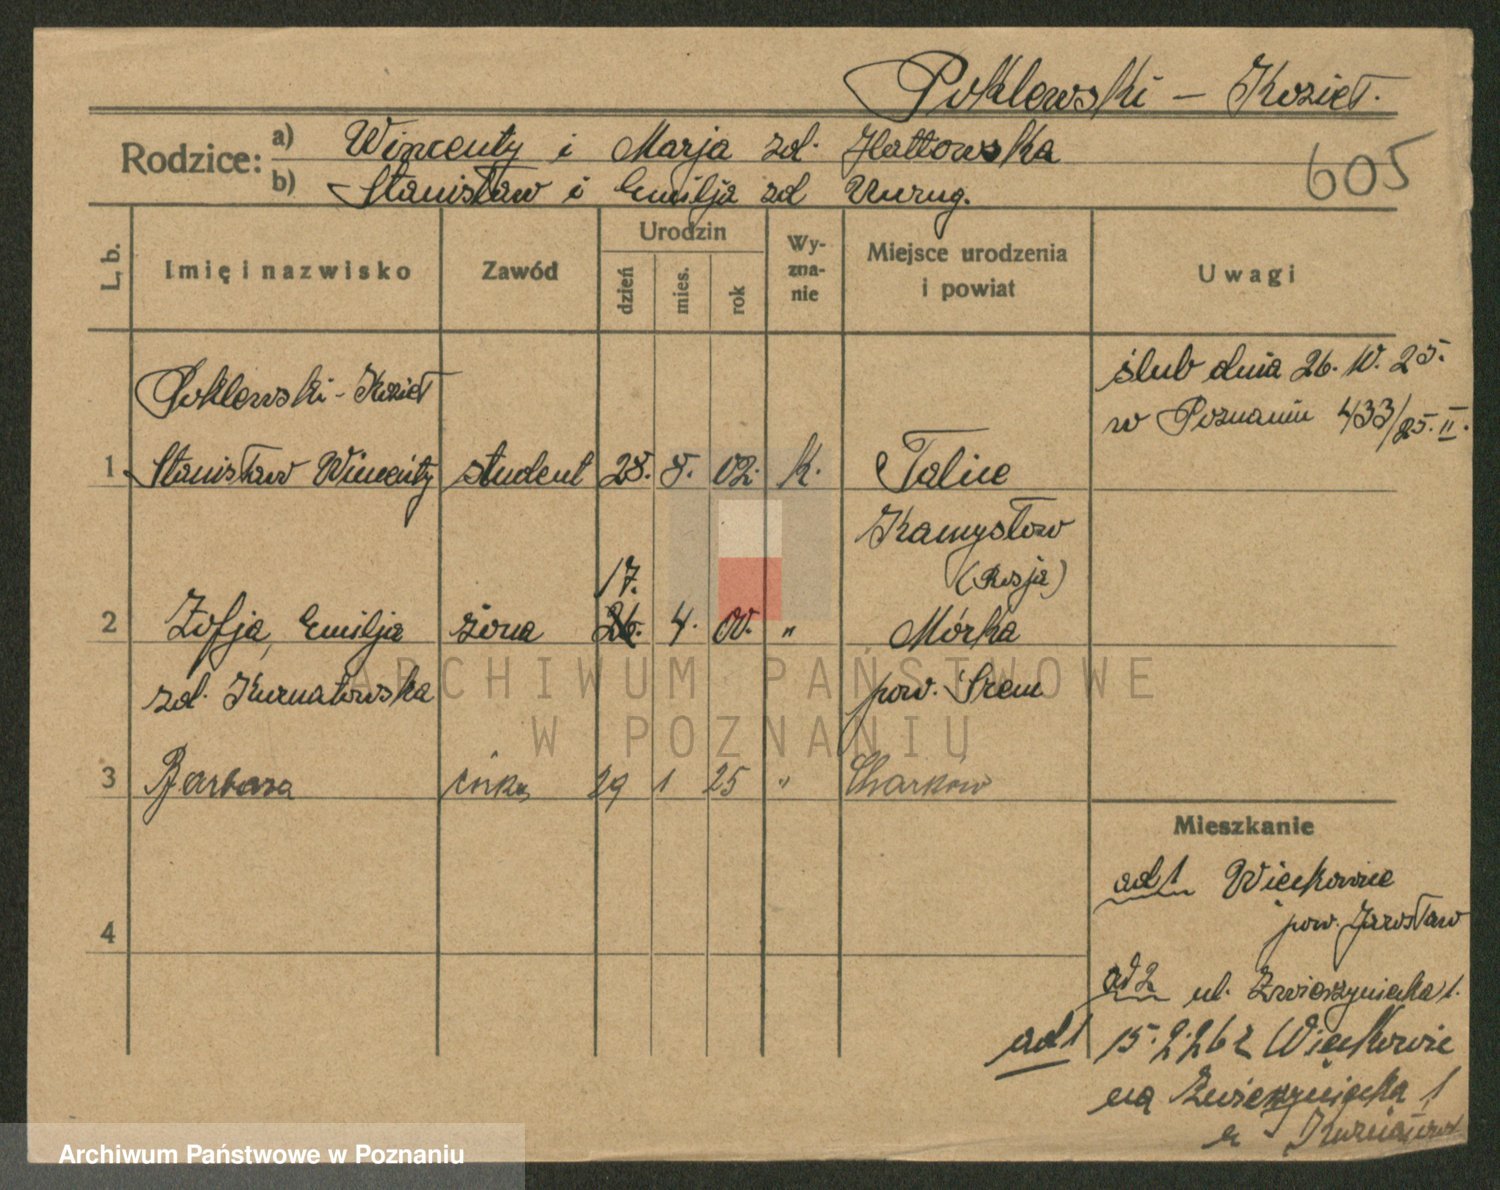 Poklewski - Kozieł.
605
Rodzice: a) Wincenty i Marja zd. Hattowska
b) Stanisław i Emilja zd Unrug.
L. b.
Imię i nazwisko
Zawód
Urodzin
dzień
mies.
rok
Wy-
zna-
nie
Miejsce urodzenia
i powiat
Uwagi
Poklewski - Kozieł
1 Stanisław Wincenty student 28. 8. 02. k. Talice
Kamysłow
(Rosja)
ślub dnia 26. IV. 25.
w Poznaniu 433/25. II.
17.
2 Zofja, Emilja żona 26. 4. 00. „ Mórka
zd. Kurnatowska pow. Śrem
3 Barbara córka 29 1 25 „ Charków
4
Mieszkanie
ad 1 Wieckowice
pow. Jarosław
ad 2 ul. Zwierzyniecka 1.
ad 1 15.2.26 z Więckowic
na Zwierzyniecka 1
ARCHIWUM PAŃSTWOWE
W POZNANIU
Archiwum Państwowe w Poznaniu